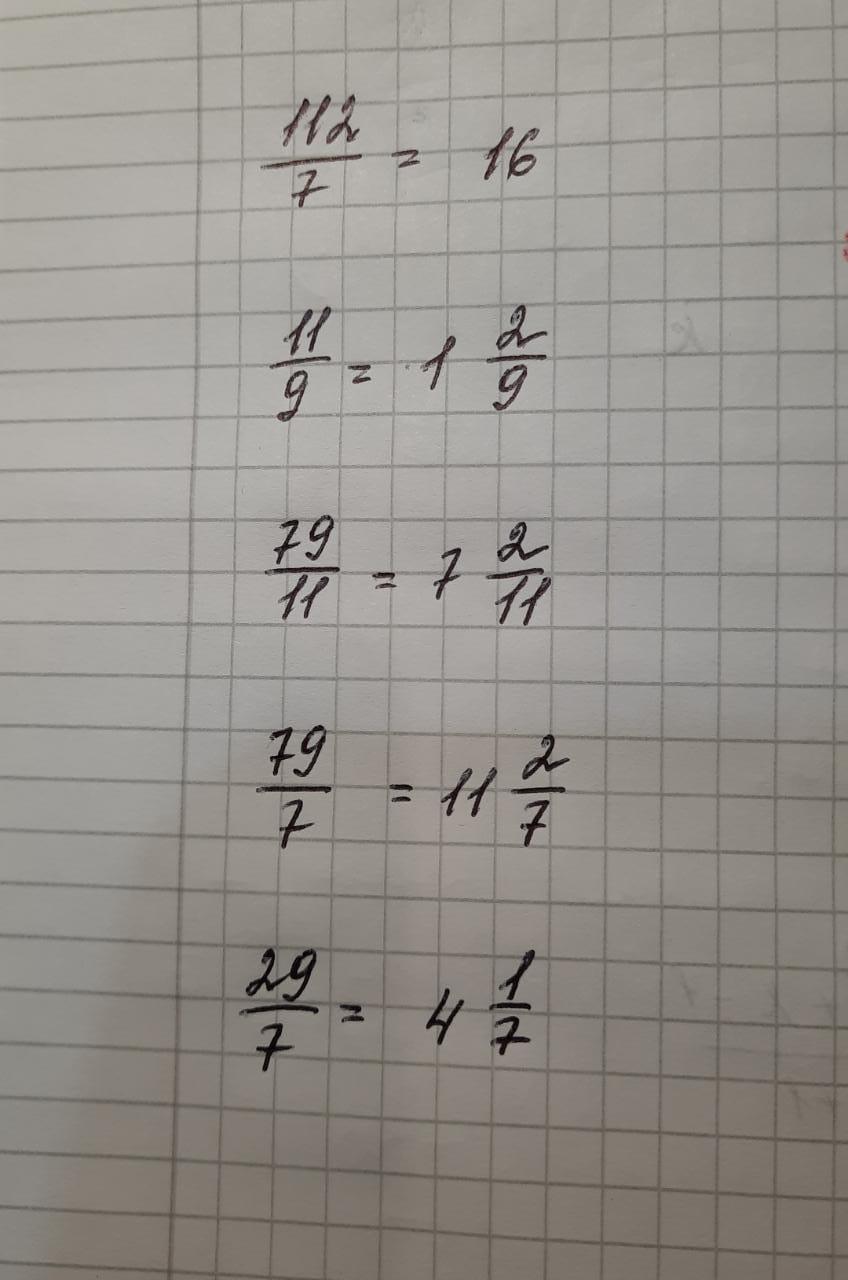 112/7 = 16
11/9 = 1 2/9
79/11 = 7 2/11
79/7 = 11 2/7
29/7 = 4 1/7